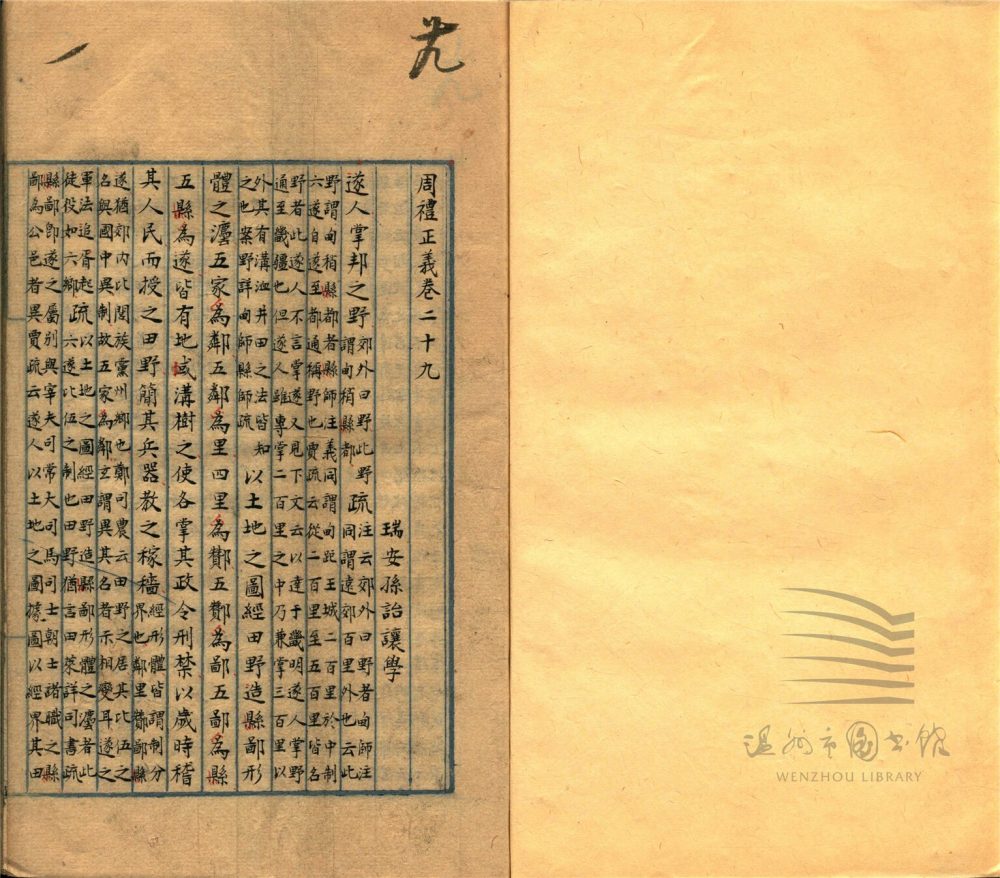 廿九
周禮正義卷二十九
瑞安孫詒讓學
遂人掌邦之野郊外曰野此野謂甸稍縣都疏注云郊外曰野者甸師注同謂遠郊百里外也云此
野謂甸稍縣都者縣師注義同謂甸距王城二百里於中制
六遂自遂至都通稱野也賈疏云從二百里至五百里皆名
野者此遂人不言掌遂又見下文云以達于畿明遂人掌野
通至畿疆也但遂人雖專掌二百里之中乃兼掌三百里以
外其有溝洫井田之法皆知之也案野詳甸師縣師疏以土地之圖經田野造縣鄙形
體之灋五家為鄰五鄰為里四里為酇五酇為鄙五鄙為縣
五縣為遂皆有地域溝樹之使各掌其政令刑禁以歲時稽
其人民而授之田野簡其兵器教之稼穡經形體皆謂制分界也鄰里酇鄙縣
遂猶郊內比閭族黨州鄉也鄭司農云田野之居其比伍之
名與國中異制故五家為鄰玄謂異其名者示相變耳遂之
軍法追胥起徒役如六鄉疏以土地之圖經田野造縣鄙形體之灋者此六遂比伍之制也田野猶言田萊詳司書疏
縣鄙即遂之屬別與宰夫司常大司馬司士朝士諸職之縣
鄙為公邑者異賈疏云遂人以土地之圖據圖以經界其田
温州市图书馆
WENZHOU LIBRARY